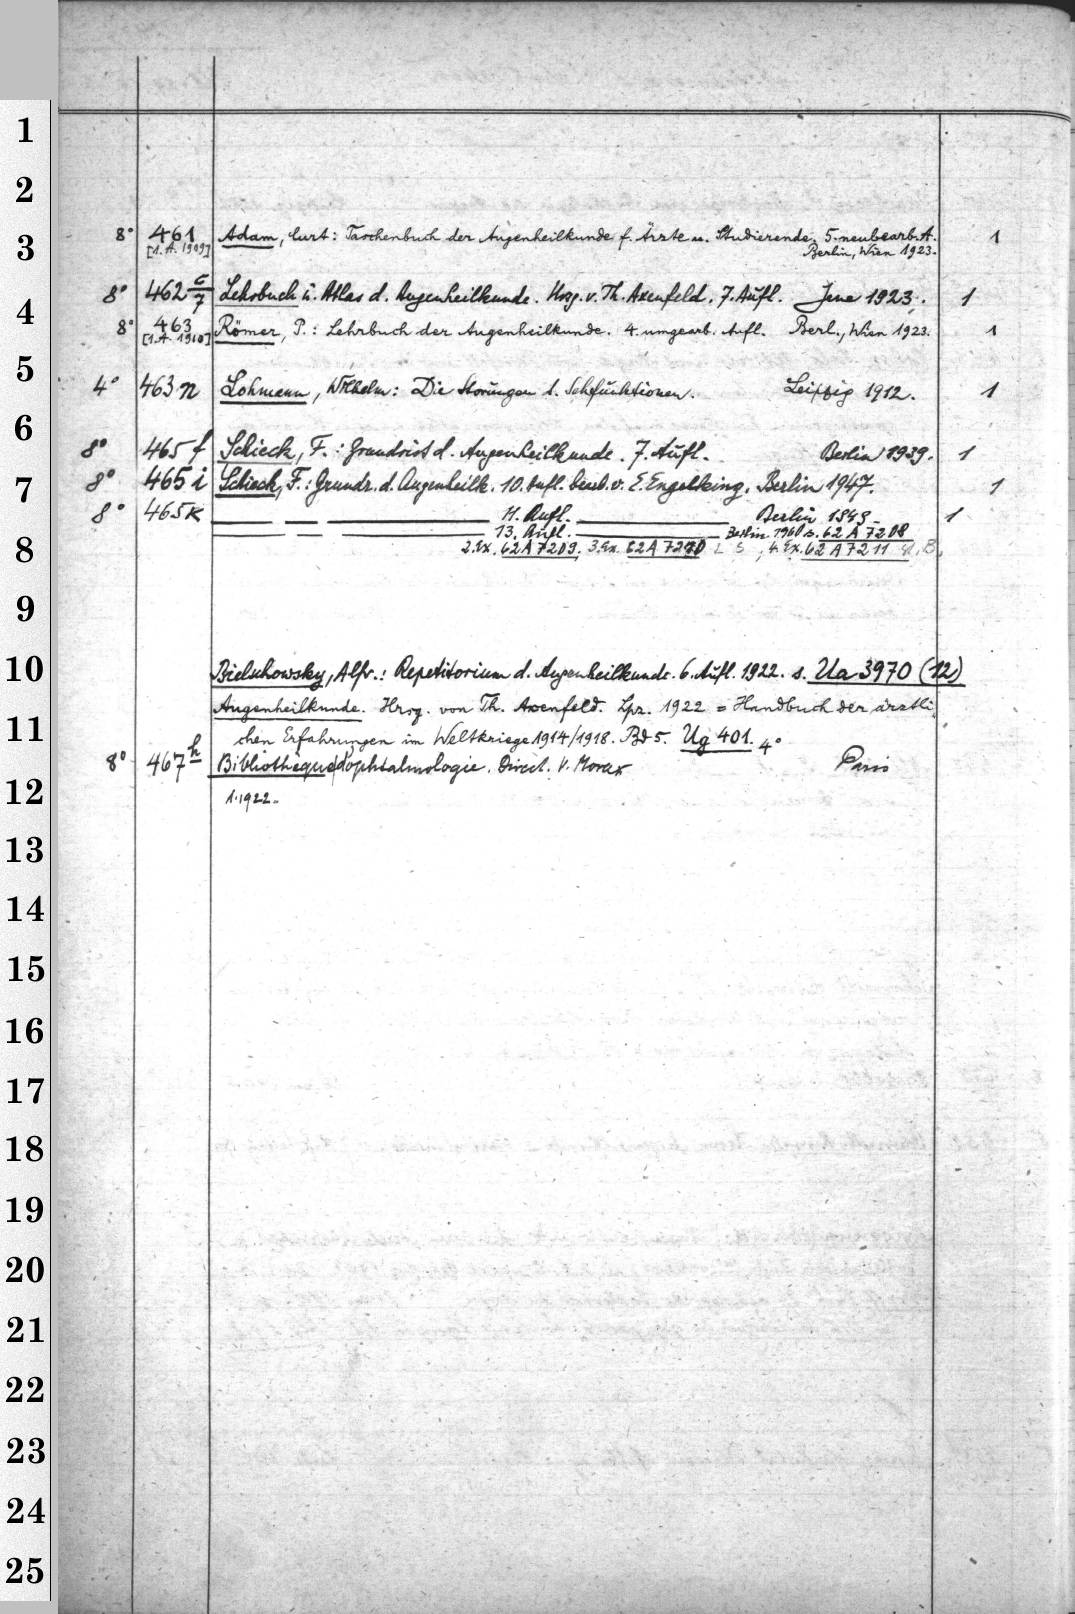 1
2
3
8° 461 Adam, Curt: Taschenbuch der Augenheilkunde f. Ärzte u. Studierende. 5. neubearb. A. 1
[1. A. 1909] Berlin, Wien 1923.
4
8° 462 c/7 Lehrbuch u. Atlas d. Augenheilkunde. Hrsg. v. Th. Axenfeld. 7. Aufl. Jena 1923. 1
8° 463 Römer, P.: Lehrbuch der Augenheilkunde. 4. umgearb. Aufl. Berl., Wien 1923. 1
[1. A. 1910]
5
4° 463 n Lohmann, Wilhelm: Die Störungen d. Sehfunktionen. Leipzig 1912. 1
6
8° 465 f Schieck, F.: Grundriss d. Augenheilkunde. 7. Aufl. Berlin 1939. 1
7
8° 465 i Schieck, F.: Grundr. d. Augenheilk. 10. Aufl. bearb. v. E. Engelking. Berlin 1947. 1
8° 465 k — — — 11. Aufl. — Berlin 1949. 1
— — — 13. Aufl. — Berlin 1960 s. 62 A 7208
8
2. Ex. 62 A 7209, 3. Ex. 62 A 7210 LS, 4. Ex. 62 A 7211
9
10
Bielschowsky, Alfr.: Repetitorium d. Augenheilkunde. 6. Aufl. 1922. s. Ua 3970 (12)
Augenheilkunde. Hrsg. von Th. Axenfeld. Lpz. 1922 = Handbuch der ärztli
11
chen Erfahrungen im Weltkriege 1914/1918. Bd 5. Ug 401. 4°
8° 467 h Bibliothèque d'ophtalmologie. Direct. V. Morax Paris
12
1. 1922.
13
14
15
16
17
18
19
20
21
22
23
24
25